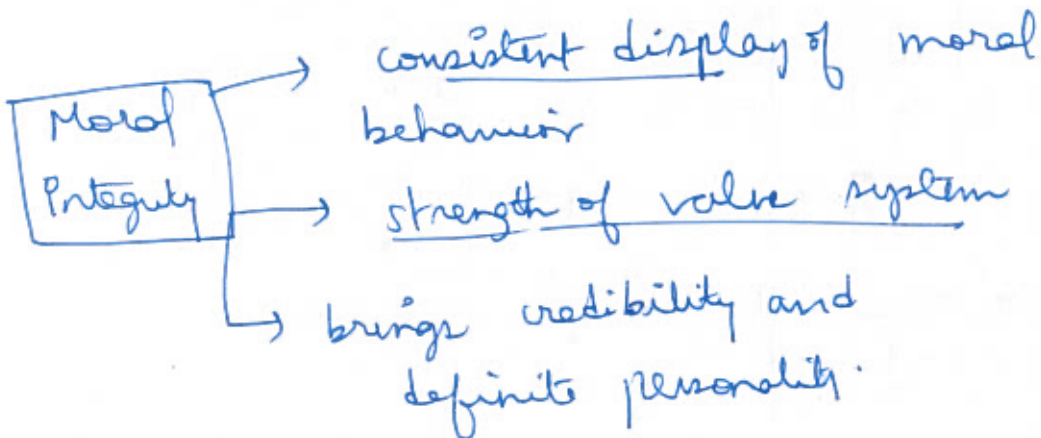 Moral
Integrity
consistent display of moral
behavior
strength of value system
brings credibility and
definite personality.